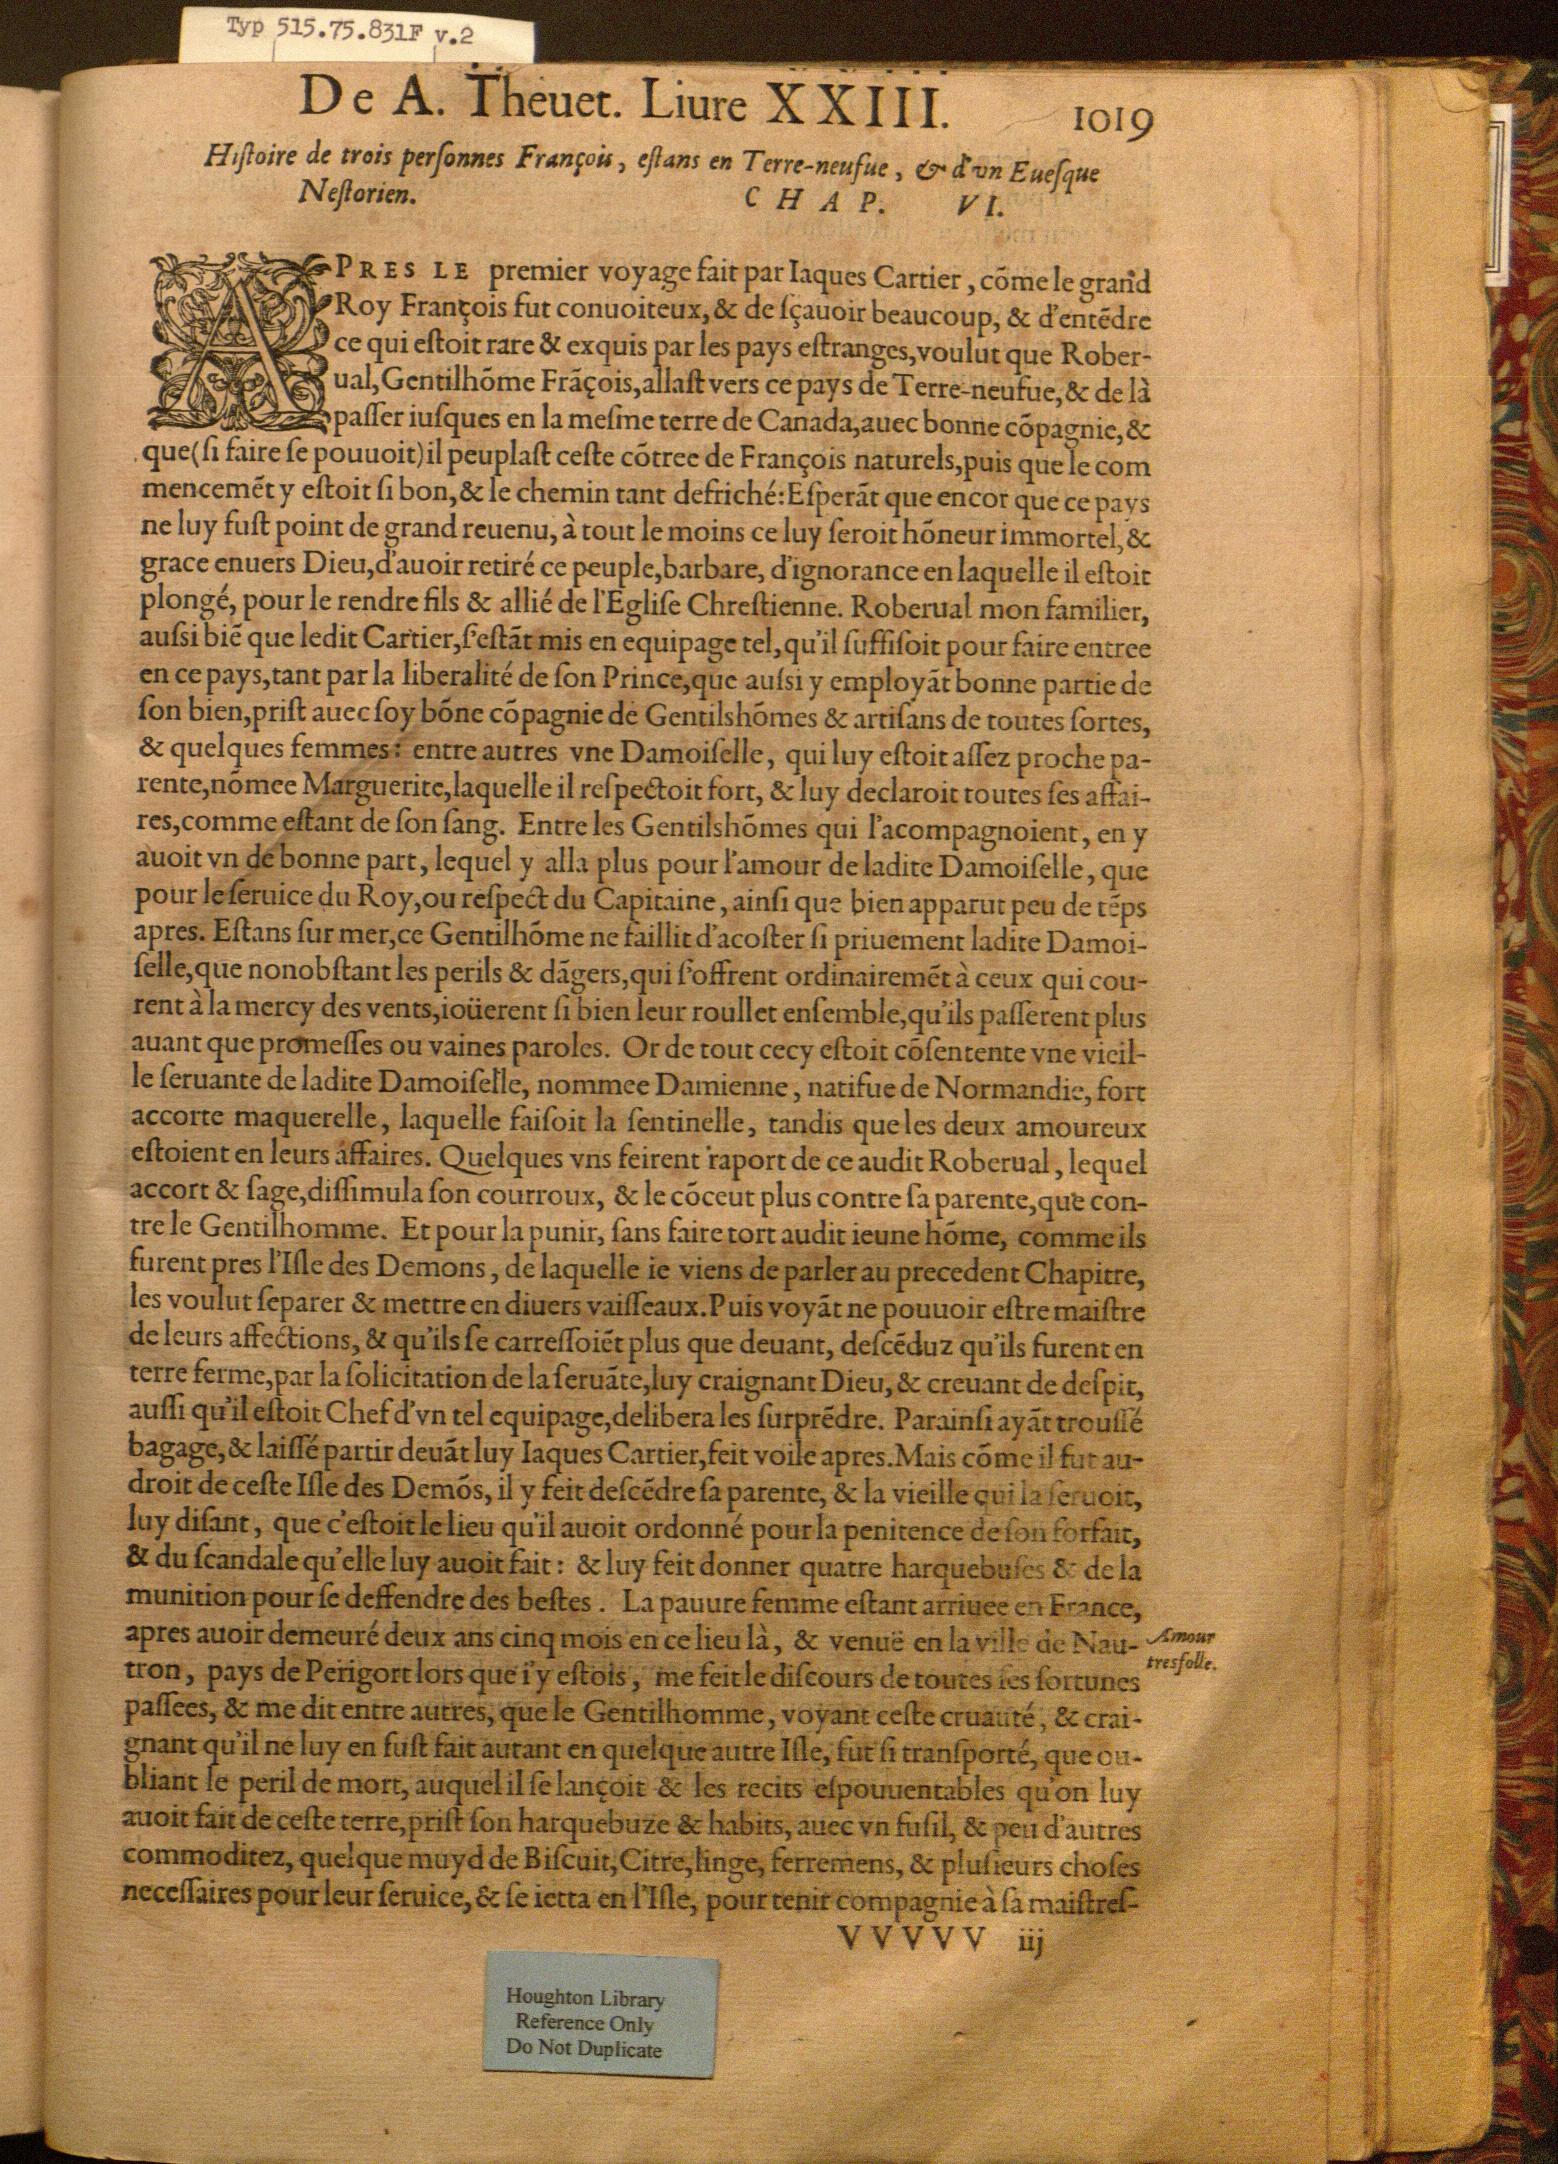 Typ 515.75.831F v.2
De A. Theuet. Liure XXIII. 1019
Hiſtoire de trois perſonnes François, eſtans en Terre-neufue, & d'vn Eueſque
Neſtorien. CHAP. VI.
APRES LE premier voyage fait par Iaques Cartier, cõme le grand
Roy François fut conuoiteux, & de ſçauoir beaucoup, & d'entẽdre
ce qui eſtoit rare & exquis par les pays eſtranges, voulut que Rober-
ual, Gentilhõme Frãçois, allaſt vers ce pays de Terre-neufue, & de là
paſſer iuſques en la meſme terre de Canada, auec bonne cõpagnie, &
que (ſi faire ſe pouuoit) il peuplaſt ceſte cõtree de François naturels, puis que le com
mencemẽt y eſtoit ſi bon, & le chemin tant defriché: Eſperãt que encor que ce pays
ne luy fuſt point de grand reuenu, à tout le moins ce luy ſeroit hõneur immortel, &
grace enuers Dieu, d'auoir retiré ce peuple, barbare, d'ignorance en laquelle il eſtoit
plongé, pour le rendre fils & allié de l'Egliſe Chreſtienne. Roberual mon familier,
auſsi biẽ que ledit Cartier, ſ'eſtãt mis en equipage tel, qu'il ſuffiſoit pour faire entree
en ce pays, tant par la liberalité de ſon Prince, que auſsi y employãt bonne partie de
ſon bien, priſt auec ſoy bõne cõpagnie de Gentilshõmes & artiſans de toutes ſortes,
& quelques femmes: entre autres vne Damoiſelle, qui luy eſtoit aſſez proche pa-
rente, nõmee Marguerite, laquelle il reſpectoit fort, & luy declaroit toutes ſes affai-
res, comme eſtant de ſon ſang. Entre les Gentilshõmes qui l'acompagnoient, en y
auoit vn de bonne part, lequel y alla plus pour l'amour de ladite Damoiſelle, que
pour le ſeruice du Roy, ou reſpect du Capitaine, ainſi que bien apparut peu de tẽps
apres. Eſtans ſur mer, ce Gentilhõme ne faillit d'acoſter ſi priuement ladite Damoi-
ſelle, que nonobſtant les perils & dãgers, qui ſ'offrent ordinairemẽt à ceux qui cou-
rent à la mercy des vents, ioüerent ſi bien leur roullet enſemble, qu'ils paſſerent plus
auant que promeſſes ou vaines paroles. Or de tout cecy eſtoit cõſentente vne vieil-
le ſeruante de ladite Damoiſelle, nommee Damienne, natifue de Normandie, fort
accorte maquerelle, laquelle faiſoit la ſentinelle, tandis que les deux amoureux
eſtoient en leurs affaires. Quelques vns feirent raport de ce audit Roberual, lequel
accort & ſage, diſſimula ſon courroux, & le cõceut plus contre ſa parente, que con-
tre le Gentilhomme. Et pour la punir, ſans faire tort audit ieune hõme, comme ils
furent pres l'Iſle des Demons, de laquelle ie viens de parler au precedent Chapitre,
les voulut ſeparer & mettre en diuers vaiſſeaux. Puis voyãt ne pouuoir eſtre maiſtre
de leurs affections, & qu'ils ſe carreſſoiẽt plus que deuant, deſcẽduz qu'ils furent en
terre ferme, par la ſolicitation de la ſeruãte, luy craignant Dieu, & creuant de deſpit,
auſſi qu'il eſtoit Chef d'vn tel equipage, delibera les ſurprẽdre. Parainſi ayãt trouſſé
bagage, & laiſſé partir deuãt luy Iaques Cartier, feit voile apres. Mais cõme il fut au-
droit de ceſte Iſle des Demõs, il y feit deſcẽdre ſa parente, & la vieille qui la ſeruoit,
luy diſant, que c'eſtoit le lieu qu'il auoit ordonné pour la penitence de ſon forfait,
& du ſcandale qu'elle luy auoit fait: & luy feit donner quatre harquebuſes & de la
munition pour ſe deffendre des beſtes. La pauure femme eſtant arriuee en France,
apres auoir demeuré deux ans cinq mois en ce lieu là, & venuë en la ville de Nau-
tron, pays de Perigort lors que i'y eſtois, me feit le diſcours de toutes ſes fortunes
paſſees, & me dit entre autres, que le Gentilhomme, voyant ceſte cruauté, & crai-
gnant qu'il ne luy en fuſt fait autant en quelque autre Iſle, fut ſi tranſporté, que ou-
bliant le peril de mort, auquel il ſe lançoit & les recits eſpouuentables qu'on luy
auoit fait de ceſte terre, priſt ſon harquebuze & habits, auec vn fuſil, & peu d'autres
commoditez, quelque muyd de Biſcuit, Citre, linge, ferremens, & pluſieurs choſes
neceſſaires pour leur ſeruice, & ſe ietta en l'Iſle, pour tenir compagnie à ſa maiſtreſ-
Amour
tresfolle.
VVVVV iij
Houghton Library
Reference Only
Do Not Duplicate